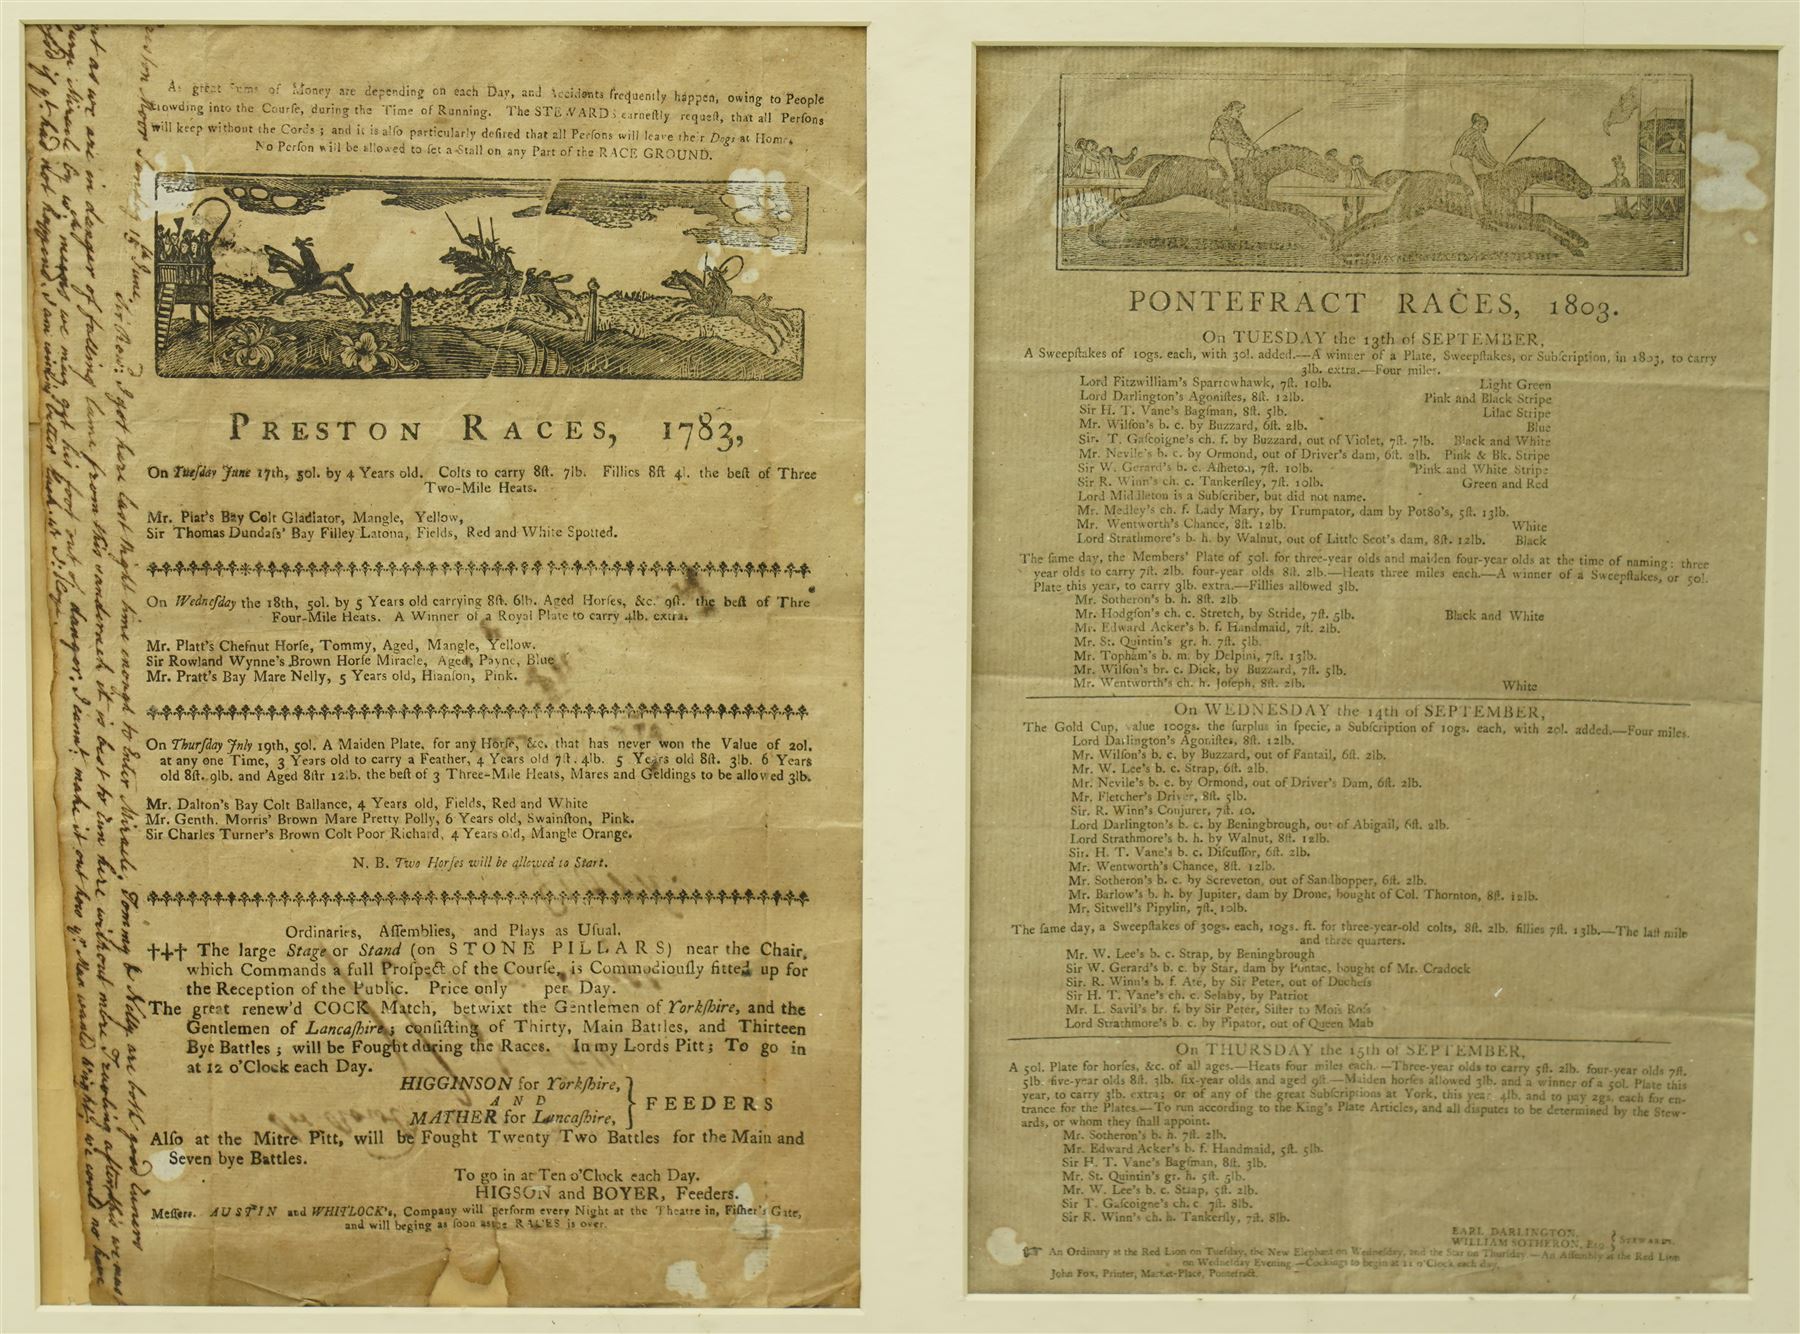 As great Sums of Money are depending on each Day, and Accidents frequently happen, owing to People
crowding into the Courſe, during the Time of Running. The STEWARDS earneſtly requeſt, that all Perſons
will keep without the Cords; and it is alſo particularly deſired that all Perſons will leave their Dogs at Home.
No Perſon will be allowed to ſet a Stall on any Part of the RACE GROUND.
PRESTON RACES, 1783,
On Tueſday June 17th, 50l. by 4 Years old. Colts to carry 8ſt. 7lb. Fillies 8ſt 4l. the beſt of Three
Two-Mile Heats.
Mr. Piat's Bay Colt Gladiator, Mangle, Yellow,
Sir Thomas Dundaſs' Bay Filley Latona, Fields, Red and White Spotted.
On Wedneſday the 18th, 50l. by 5 Years old carrying 8ſt. 6lb. Aged Horſes, &c. 9ſt. the beſt of Thre
Four-Mile Heats. A Winner of a Royal Plate to carry 4lb. extra.
Mr. Platt's Cheſnut Horſe, Tommy, Aged, Mangle, Yellow.
Sir Rowland Wynne's Brown Horſe Miracle, Aged, Payne, Blue
Mr. Pratt's Bay Mare Nelly, 5 Years old, Hianſon, Pink.
On Thurſday July 19th, 50l. A Maiden Plate, for any Horſe, &c. that has never won the Value of 20l.
at any one Time, 3 Years old to carry a Feather, 4 Years old 7ſt. 4lb. 5 Years old 8ſt. 3lb. 6 Years
old 8ſt. 9lb. and Aged 8ſtr 12lb. the beſt of 3 Three-Mile Heats, Mares and Geldings to be allowed 3lb.
Mr. Dalton's Bay Colt Ballance, 4 Years old, Fields, Red and White
Mr. Genth. Morris' Brown Mare Pretty Polly, 6 Years old, Swainſton, Pink.
Sir Charles Turner's Brown Colt Poor Richard, 4 Years old, Mangle Orange.
N. B. Two Horſes will be allowed to Start.
Ordinaries, Aſſemblies, and Plays as Uſual.
††† The large Stage or Stand (on STONE PILLARS) near the Chair,
which Commands a full Proſpect of the Courſe, is Commodiouſly fitted up for
the Reception of the Public. Price only per Day.
The great renew'd COCK Match, betwixt the Gentlemen of Yorkſhire, and the
Gentlemen of Lancaſhire; conſiſting of Thirty, Main Battles, and Thirteen
Bye Battles; will be Fought during the Races. In my Lords Pitt; To go in
at 12 o'Clock each Day.
HIGGINSON for Yorkſhire,
AND
MATHER for Lancaſhire, } FEEDERS
Alſo at the Mitre Pitt, will be Fought Twenty Two Battles for the Main and
Seven bye Battles.
To go in at Ten o'Clock each Day.
HIGSON and BOYER, Feeders.
Meſſers. AUSTIN and WHITLOCK's, Company will perform every Night at the Theatre in, Fiſher's Gate,
and will beging as ſoon as the RACES is over.
Moor Sunday 15th June,
Sir Row.d I got here last night time enough to Enter Miracle, Tommy & Nelly are both good runners
but as we are in danger of falling lame from this it is best to run here without more Traveling after this we may
Miracle by wch means we may get his foot out of danger, I cannt make it out how yr Man
if yt had not happend. I am
PONTEFRACT RACES, 1803.
On TUESDAY the 13th of SEPTEMBER,
A Sweepſtakes of 10gs. each, with 30l. added.—A winner of a Plate, Sweepſtakes, or Subſcription, in 1803, to carry
3lb. extra.—Four miles.
Lord Fitzwilliam's Sparrowhawk, 7ſt. 10lb. Light Green
Lord Darlington's Agoniſtes, 8ſt. 12lb. Pink and Black Stripe
Sir H. T. Vane's Bagſman, 8ſt. 5lb. Lilac Stripe
Mr. Wilſon's b. c. by Buzzard, 6ſt. 2lb. Blue
Sir. T. Gaſcoigne's ch. f. by Buzzard, out of Violet, 7ſt. 7lb. Black and White
Mr. Nevile's b. c. by Ormond, out of Driver's dam, 6ſt. 2lb. Pink & Bk. Stripe
Sir W. Gerard's b. c. Aſheton, 7ſt. 10lb. Pink and White Stripe
Sir R. Winn's ch. c. Tankerſley, 7ſt. 10lb. Green and Red
Lord Middleton is a Subſcriber, but did not name.
Mr. Medley's ch. f. Lady Mary, by Trumpator, dam by Pot8o's, 5ſt. 13lb.
Mr. Wentworth's Chance, 8ſt. 12lb. White
Lord Strathmore's b. h. by Walnut, out of Little Scot's dam, 8ſt. 12lb. Black
The ſame day, the Members' Plate of 50l. for three-year olds and maiden four-year olds at the time of naming: three
year olds to carry 7ſt. 2lb. four-year olds 8ſt. 2lb.—Heats three miles each.—A winner of a Sweepſtakes, or 50l.
Plate this year, to carry 3lb. extra.—Fillies allowed 3lb.
Mr. Sotheron's b. h. 8ſt. 2lb
Mr. Hodgſon's ch. c. Stretch, by Stride, 7ſt. 5lb. Black and White
Mr. Edward Acker's b. f. Handmaid, 7ſt. 2lb.
Mr. St. Quintin's gr. h. 7ſt. 5lb.
Mr. Topham's b. m. by Delpini, 7ſt. 13lb.
Mr. Wilſon's br. c. Dick, by Buzzard, 7ſt. 5lb.
Mr. Wentworth's ch. h. Joſeph, 8ſt. 2lb. White
On WEDNESDAY the 14th of SEPTEMBER,
The Gold Cup, value 100gs. the ſurplus in ſpecie, a Subſcription of 10gs. each, with 20l. added.—Four miles.
Lord Darlington's Agoniſtes, 8ſt. 12lb.
Mr. Wilſon's b. c. by Buzzard, out of Fantail, 6ſt. 2lb.
Mr. W. Lee's b. c. Strap, 6ſt. 2lb.
Mr. Nevile's b. c. by Ormond, out of Driver's Dam, 6ſt. 2lb.
Mr. Fletcher's Driver, 8ſt. 5lb.
Sir. R. Winn's Conjurer, 7ſt. 10.
Lord Darlington's b. c. by Beningbrough, out of Abigail, 6ſt. 2lb.
Lord Strathmore's b. h. by Walnut, 8ſt. 12lb.
Sir. H. T. Vane's b. c. Diſcuſſor, 6ſt. 2lb.
Mr. Wentworth's Chance, 8ſt. 12lb.
Mr. Sotheron's b. c. by Screveton, out of Sandhopper, 6ſt. 2lb.
Mr. Barlow's b. h. by Jupiter, dam by Drone, bought of Col. Thornton, 8ſt. 12lb.
Mr. Sitwell's Pipylin, 7ſt. 10lb.
The ſame day, a Sweepſtakes of 30gs. each, 10gs. ft. for three-year-old colts, 8ſt. 2lb. fillies 7ſt. 13lb.—The laſt mile
and three quarters.
Mr. W. Lee's b. c. Strap, by Beningbrough
Sir W. Gerard's b. c. by Star, dam by Pontac, bought of Mr. Cradock
Sir. R. Winn's b. f. Ate, by Sir Peter, out of Ducheſs
Sir H. T. Vane's ch. c. Selaby, by Patriot
Mr. L. Savil's br. f. by Sir Peter, Siſter to Mois Roſs
Lord Strathmore's b. c. by Pipator, out of Queen Mab
On THURSDAY the 15th of SEPTEMBER,
A 50l. Plate for horſes, &c. of all ages.—Heats four miles each.—Three-year olds to carry 5ſt. 2lb. four-year olds 7ſt.
5lb. five-year olds 8ſt. 3lb. ſix-year olds and aged 9ſt.—Maiden horſes allowed 3lb. and a winner of a 50l. Plate this
year, to carry 3lb. extra; or of any of the great Subſcriptions at York, this year, 4lb. and to pay 2gs. each for en-
trance for the Plates.—To run according to the King's Plate Articles, and all diſputes to be determined by the Stew-
ards, or whom they ſhall appoint.
Mr. Sotheron's b. h. 7ſt. 2lb.
Mr. Edward Acker's b. f. Handmaid, 5ſt. 5lb.
Sir H. T. Vane's Bagſman, 8ſt. 3lb.
Mr. St. Quintin's gr. h. 5ſt. 5lb.
Mr. W. Lee's b. c. Strap, 5ſt. 2lb.
Sir T. Gaſcoigne's ch. c. 7ſt. 8lb.
Sir R. Winn's ch. h. Tankerſly, 7ſt. 8lb.
EARL DARLINGTON,
WILLIAM SOTHERON, Eſq. } STEWARDS.
☞ An Ordinary at the Red Lion on Tueſday, the New Elephant on Wedneſday, and the Star on Thurſday—An Aſſembly at the Red Lion
on Wedneſday Evening—Cockings to begin at 11 o'Clock each day.
John Fox, Printer, Market-Place, Pontefract.